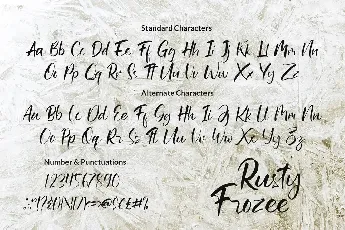 Standard Characters
Aa Bb Cc Dd Ee Ff Gg Hh Ii Jj Kk Ll Mm Nn
Oo Pp Qq Rr Ss Tt Uu Vv Ww Xx Yy Zz
Alternate Characters
Aa Bb Cc Dd Ee Ff Gg Hh Ii Jj Kk Ll Mm Nn
Oo Pp Qq Rr Ss Tt Uu Vv Ww Xx Yy Zz
Number & Punctuations
1234567890
Rusty
Frozee